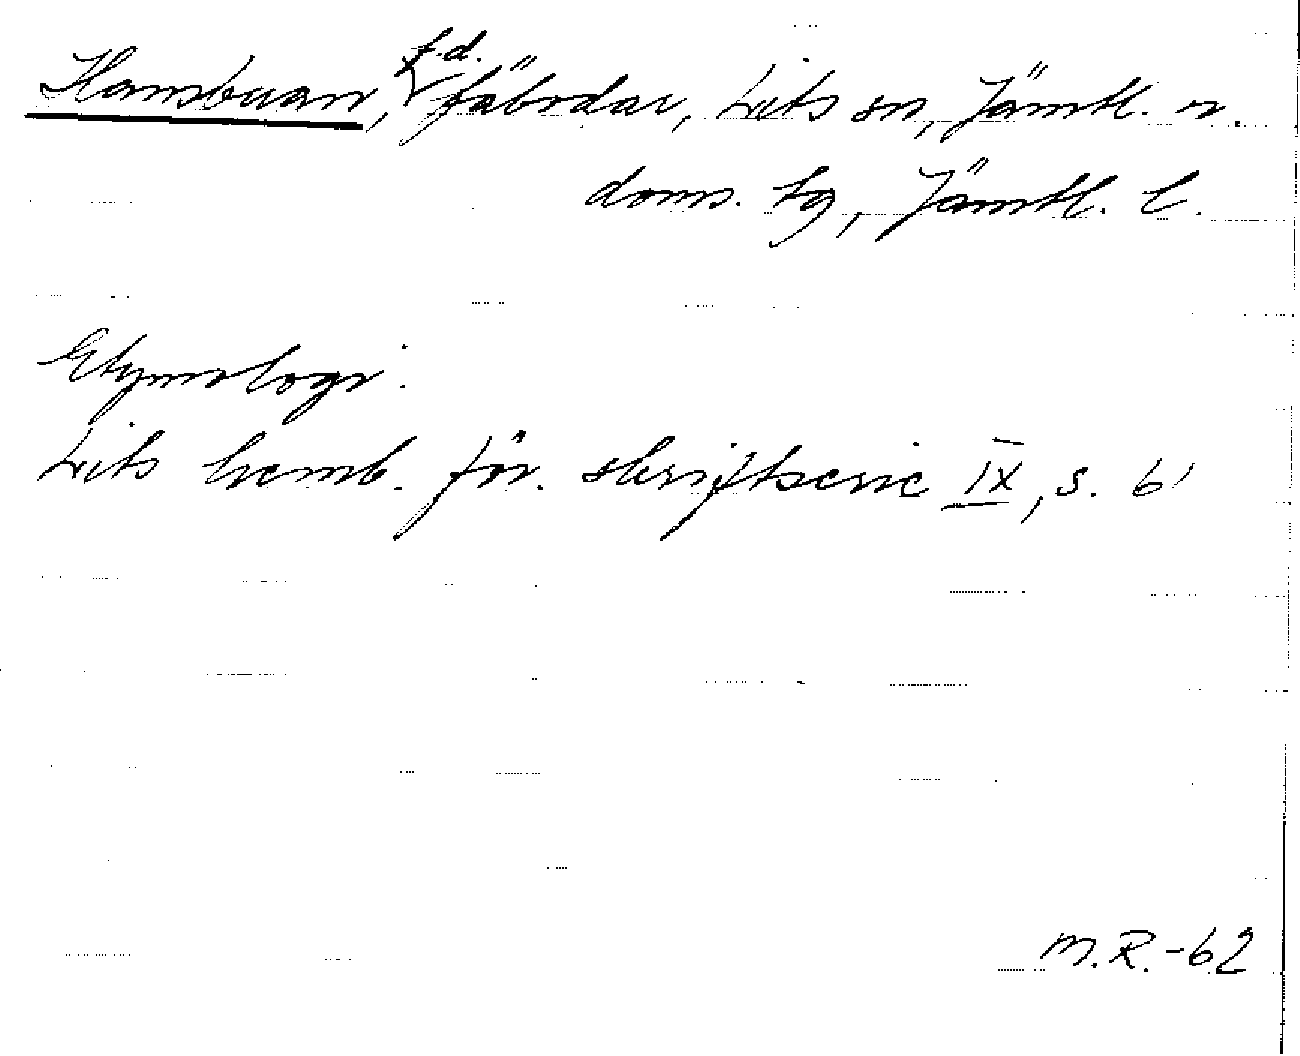 Hamsbuan, f.d. fäbodar, Lits sn, Jämtl. n.
doms. tg, Jämtl. l.
Etymologi:
Lits hemb. för. skriftserie IX, s. 61
M.R.-62